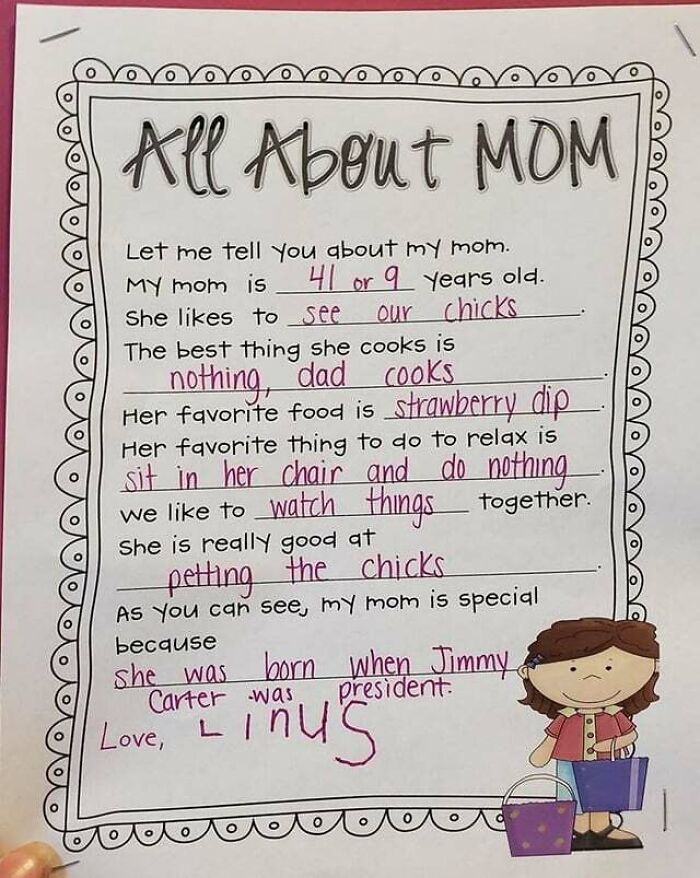 All About MOM
Let me tell you about my mom.
My mom is 41 or 9 years old.
She likes to see our chicks.
The best thing she cooks is
nothing, dad cooks.
Her favorite food is strawberry dip.
Her favorite thing to do to relax is
sit in her chair and do nothing.
We like to watch things together.
She is really good at
petting the chicks.
As you can see, my mom is special
because
she was born when Jimmy
Carter was president.
Love, Linus